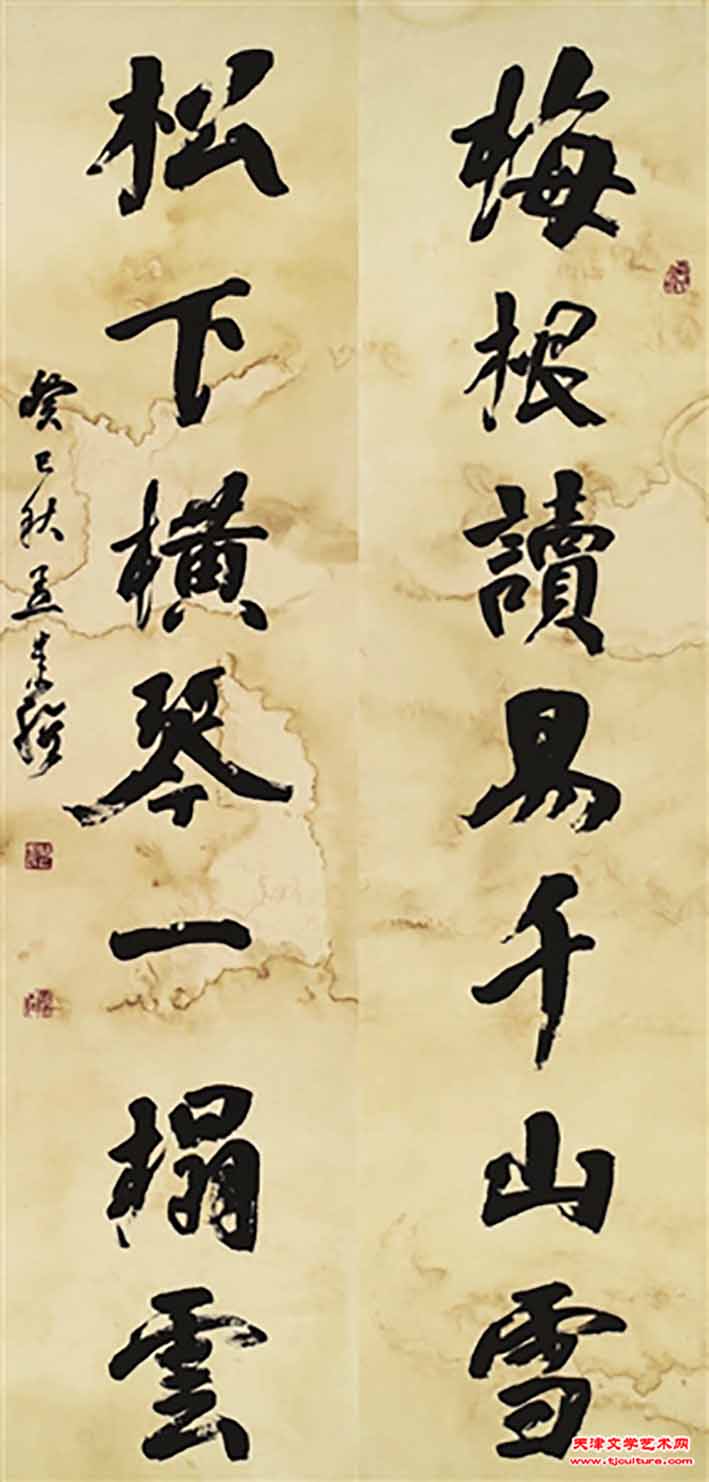 梅根讀易千山雪
松下橫琴一榻雲
癸巳秋孟
天津文学艺术网
www.tjculture.com